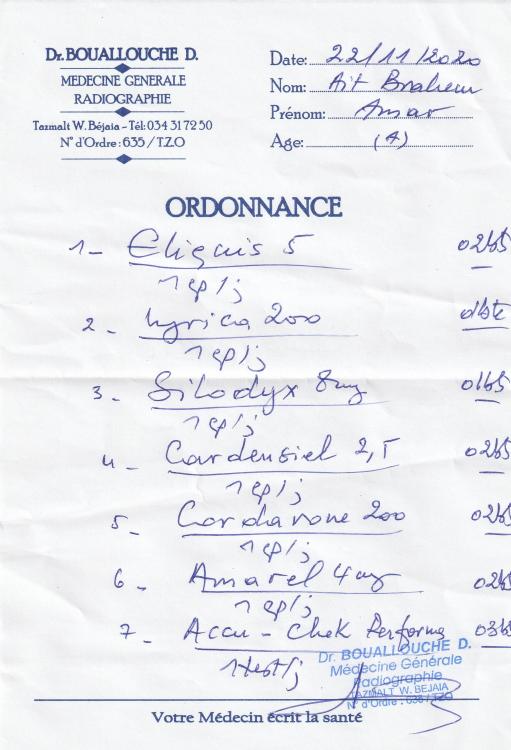 Dr. BOUALLOUCHE D.
MEDECINE GENERALE
RADIOGRAPHIE
Tazmalt W. Béjaia - Tél: 034 31 72 50
N° d'Ordre : 635 / T.Z.O
Date: 22/11/2020
Nom: Ait Braham
Prénom: Amar
Age: (A)
ORDONNANCE
1- Eliquis 5 02bts
1 cp/j
2 - Lyrica 200 01bte
1 cp/j
3 - Silodyx 8mg 01bts
1 cp/j
4 - Cardensiel 2,5 02bts
1 cp/j
5 - Cordarone 200 02bts
1 cp/j
6 - Amarel 4mg 02bts
1 cp/j
7 - Accu-Chek Performa 03bts
1 test/j
Dr. BOUALLOUCHE D.
Médecine Générale
Radiographie
TAZMALT W. BEJAIA
N° d'Ordre : 635 / TZO
Votre Médecin écrit la santé